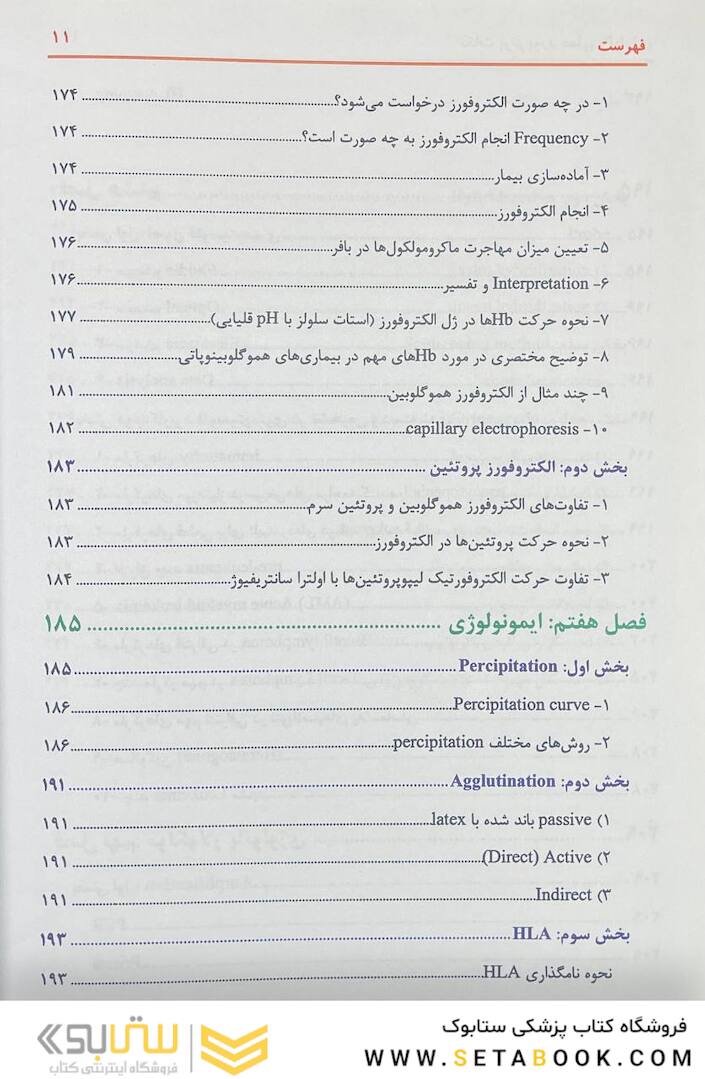 فهرست ۱۱
۱- در چه صورت الکتروفورز درخواست می‌شود؟ ۱۷۴
۲- Frequency انجام الکتروفورز به چه صورت است؟ ۱۷۴
۳- آماده‌سازی بیمار ۱۷۴
۴- انجام الکتروفورز ۱۷۵
۵- تعیین میزان مهاجرت ماکرومولکول‌ها در بافر ۱۷۶
۶- Interpretation و تفسیر ۱۷۶
۷- نحوه حرکت Hbها در ژل الکتروفورز (استات سلولز با pH قلیایی) ۱۷۷
۸- توضیح مختصری در مورد Hbهای مهم در بیماری‌های هموگلوبینوپاتی ۱۷۹
۹- چند مثال از الکتروفورز هموگلوبین ۱۸۱
۱۰- capillary electrophoresis ۱۸۲
بخش دوم: الکتروفورز پروتئین ۱۸۳
۱- تفاوت‌های الکتروفورز هموگلوبین و پروتئین سرم ۱۸۳
۲- نحوه حرکت پروتئین‌ها در الکتروفورز ۱۸۳
۳- تفاوت حرکت الکتروفورتیک لیپوپروتئین‌ها با اولترا سانتریفیوژ ۱۸۴
فصل هفتم: ایمونولوژی ۱۸۵
بخش اول: Percipitation ۱۸۵
۱- Percipitation curve ۱۸۶
۲- روش‌های مختلف percipitation ۱۸۶
بخش دوم: Agglutination ۱۹۱
۱) passive باند شده با latex ۱۹۱
۲) Active (Direct) ۱۹۱
۳) Indirect ۱۹۱
بخش سوم: HLA ۱۹۳
نحوه نامگذاری HLA ۱۹۳
فروشگاه کتاب پزشکی ستابوک
WWW.SETABOOK.COM
ستابوک
فروشگاه اینترنتی کتاب